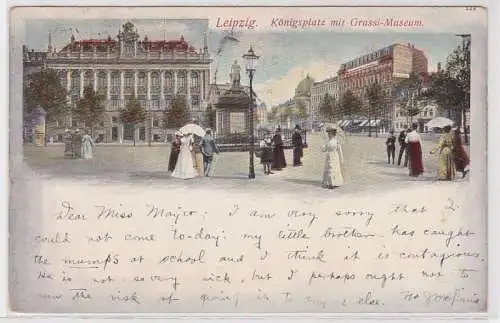 Leipzig. Königsplatz mit Grassi-Museum.
Dear Miss Mayro: I am very sorry that I
could not come to-day: my little brother has caught
the mumps at school and I think it is contagious.
He is not so very sick, but I perhaps ought not to
run the risk of giving it to any one else.